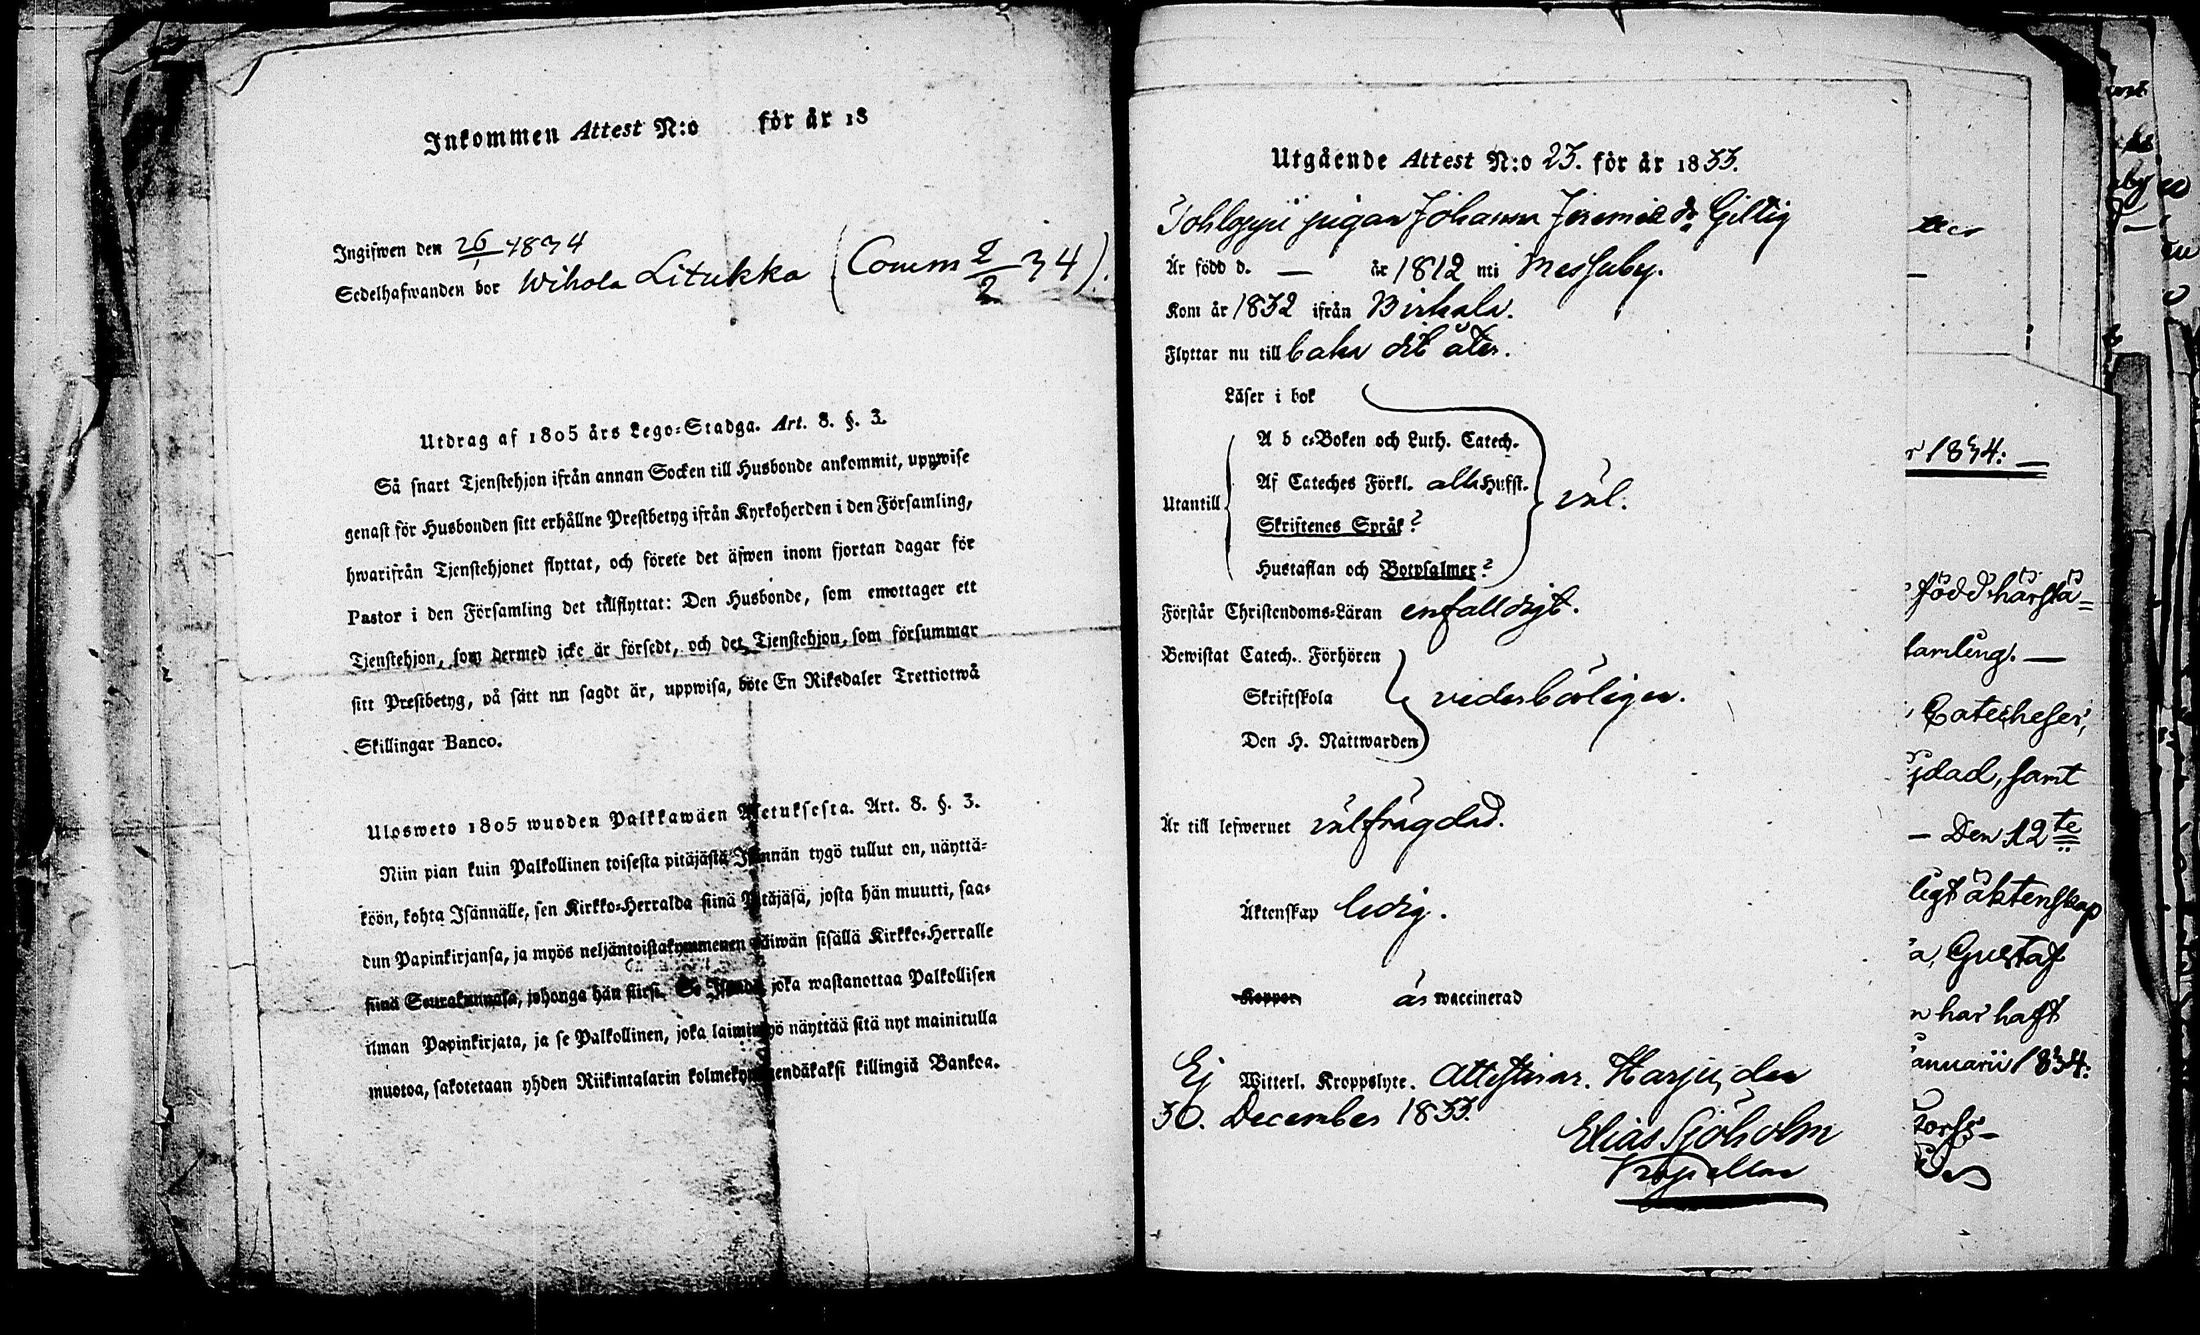 Inkommen Attest N:o för år 18
Ingifwen den 26/1 1834
Sedelhafwanden bor Wihola Litukka (Comm 2/2 34).
Utdrag af 1805 års Lego-Stadga. Art. 8. §. 3.
Så snart Tjenstehjon ifrån annan Socken till Husbonde ankommit, uppwise
genast för Husbonden sitt erhållne Prestbetyg ifrån Kyrkoherden i den Församling,
hwarifrån Tjenstehjonet flyttat, och förete det äfwen inom fjortan dagar för
Pastor i den Församling det tillflyttat: Den Husbonde, som emottager ett
Tjenstehjon, som dermed icke är försedt, och det Tjenstehjon, som försummar
sitt Prestbetyg, på sätt nu sagdt är, uppwisa, böte En Riksdaler Trettiotwå
Skillingar Banco.
Ulosweto 1805 wuoden Palkkawäen Asetuksesta. Art. 8. §. 3.
Niin pian kuin Palkollinen toisesta pitäjästä Isännän tygö tullut on, näyttä-
köön, kohta Isännälle, sen Kirkko-Herralda siinä Pitäjäsä, josta hän muutti, saa-
dun Papinkirjansa, ja myös neljäntoistakymmenen päiwän sisällä Kirkko-Herralle
siinä Seurakunnasa, johonga hän siirsi. Se Isändä joka wastanottaa Palkollisen
ilman Papinkirjata, ja se Palkollinen, joka laiminlyö näyttää sitä nyt mainitulla
muotoa, sakotetaan yhden Riikintalarin kolmekymmendäkaksi killingiä Bankoa.
Utgående Attest N:o 23. för år 1833.
pigan Johanna Jeremiæ dr Giltig
Är född d. — år 1812 uti Messuby.
Kom år 1832 ifrån Birkala.
Flyttar nu till baka dit åter.
Läser i bok
A b c-Boken och Luth. Catech.
Af Cateches Förkl. alla Hufst.
Utantill väl.
Skriftenes Språk?
Hustaflan och Botpsalmer?
Förstår Christendoms-Läran enfalldigt.
Bewistat Catech. Förhören
Skriftskola vederbörligen.
Den H. Nattwarden
Är till lefwernet välfrägdad.
Äktenskap ledig.
Koppor är waccinerad
Ej Witterl. Kroppslyte. Attesterar. Harju, den
30. December 1833.
Elias Sjöholm
Kapellan
1834: —
född härstä-
samling. —
Catecheser,
gdad, samt
— Den 12te
ligt äktenskap
a, Gustaf
n har haft
anuarii 1834: